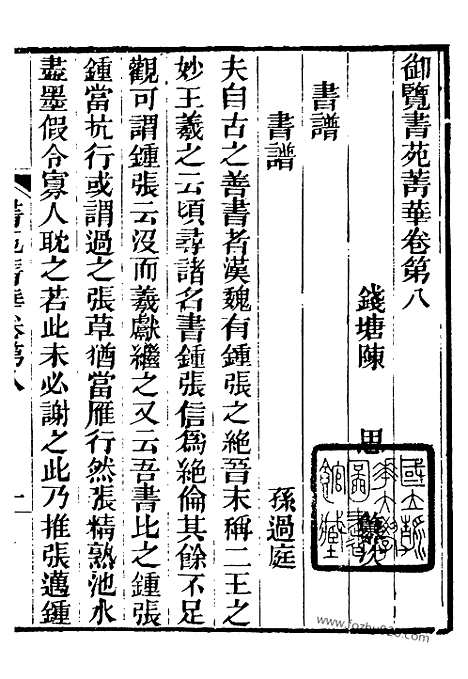 御覽書苑菁華卷第八
錢塘陳　思
書譜
書譜　孫過庭
夫自古之善書者漢魏有鍾張之絶晉末稱二王之
妙王羲之云頃尋諸名書鍾張信爲絶倫其餘不足
觀可謂鍾張云沒而羲獻繼之又云吾書比之鍾張
鍾當抗行或謂過之張草猶當雁行然張精熟池水
盡墨假令寡人耽之若此未必謝之此乃推張邁鍾
菁華卷第八　一
www.fozhu920.com